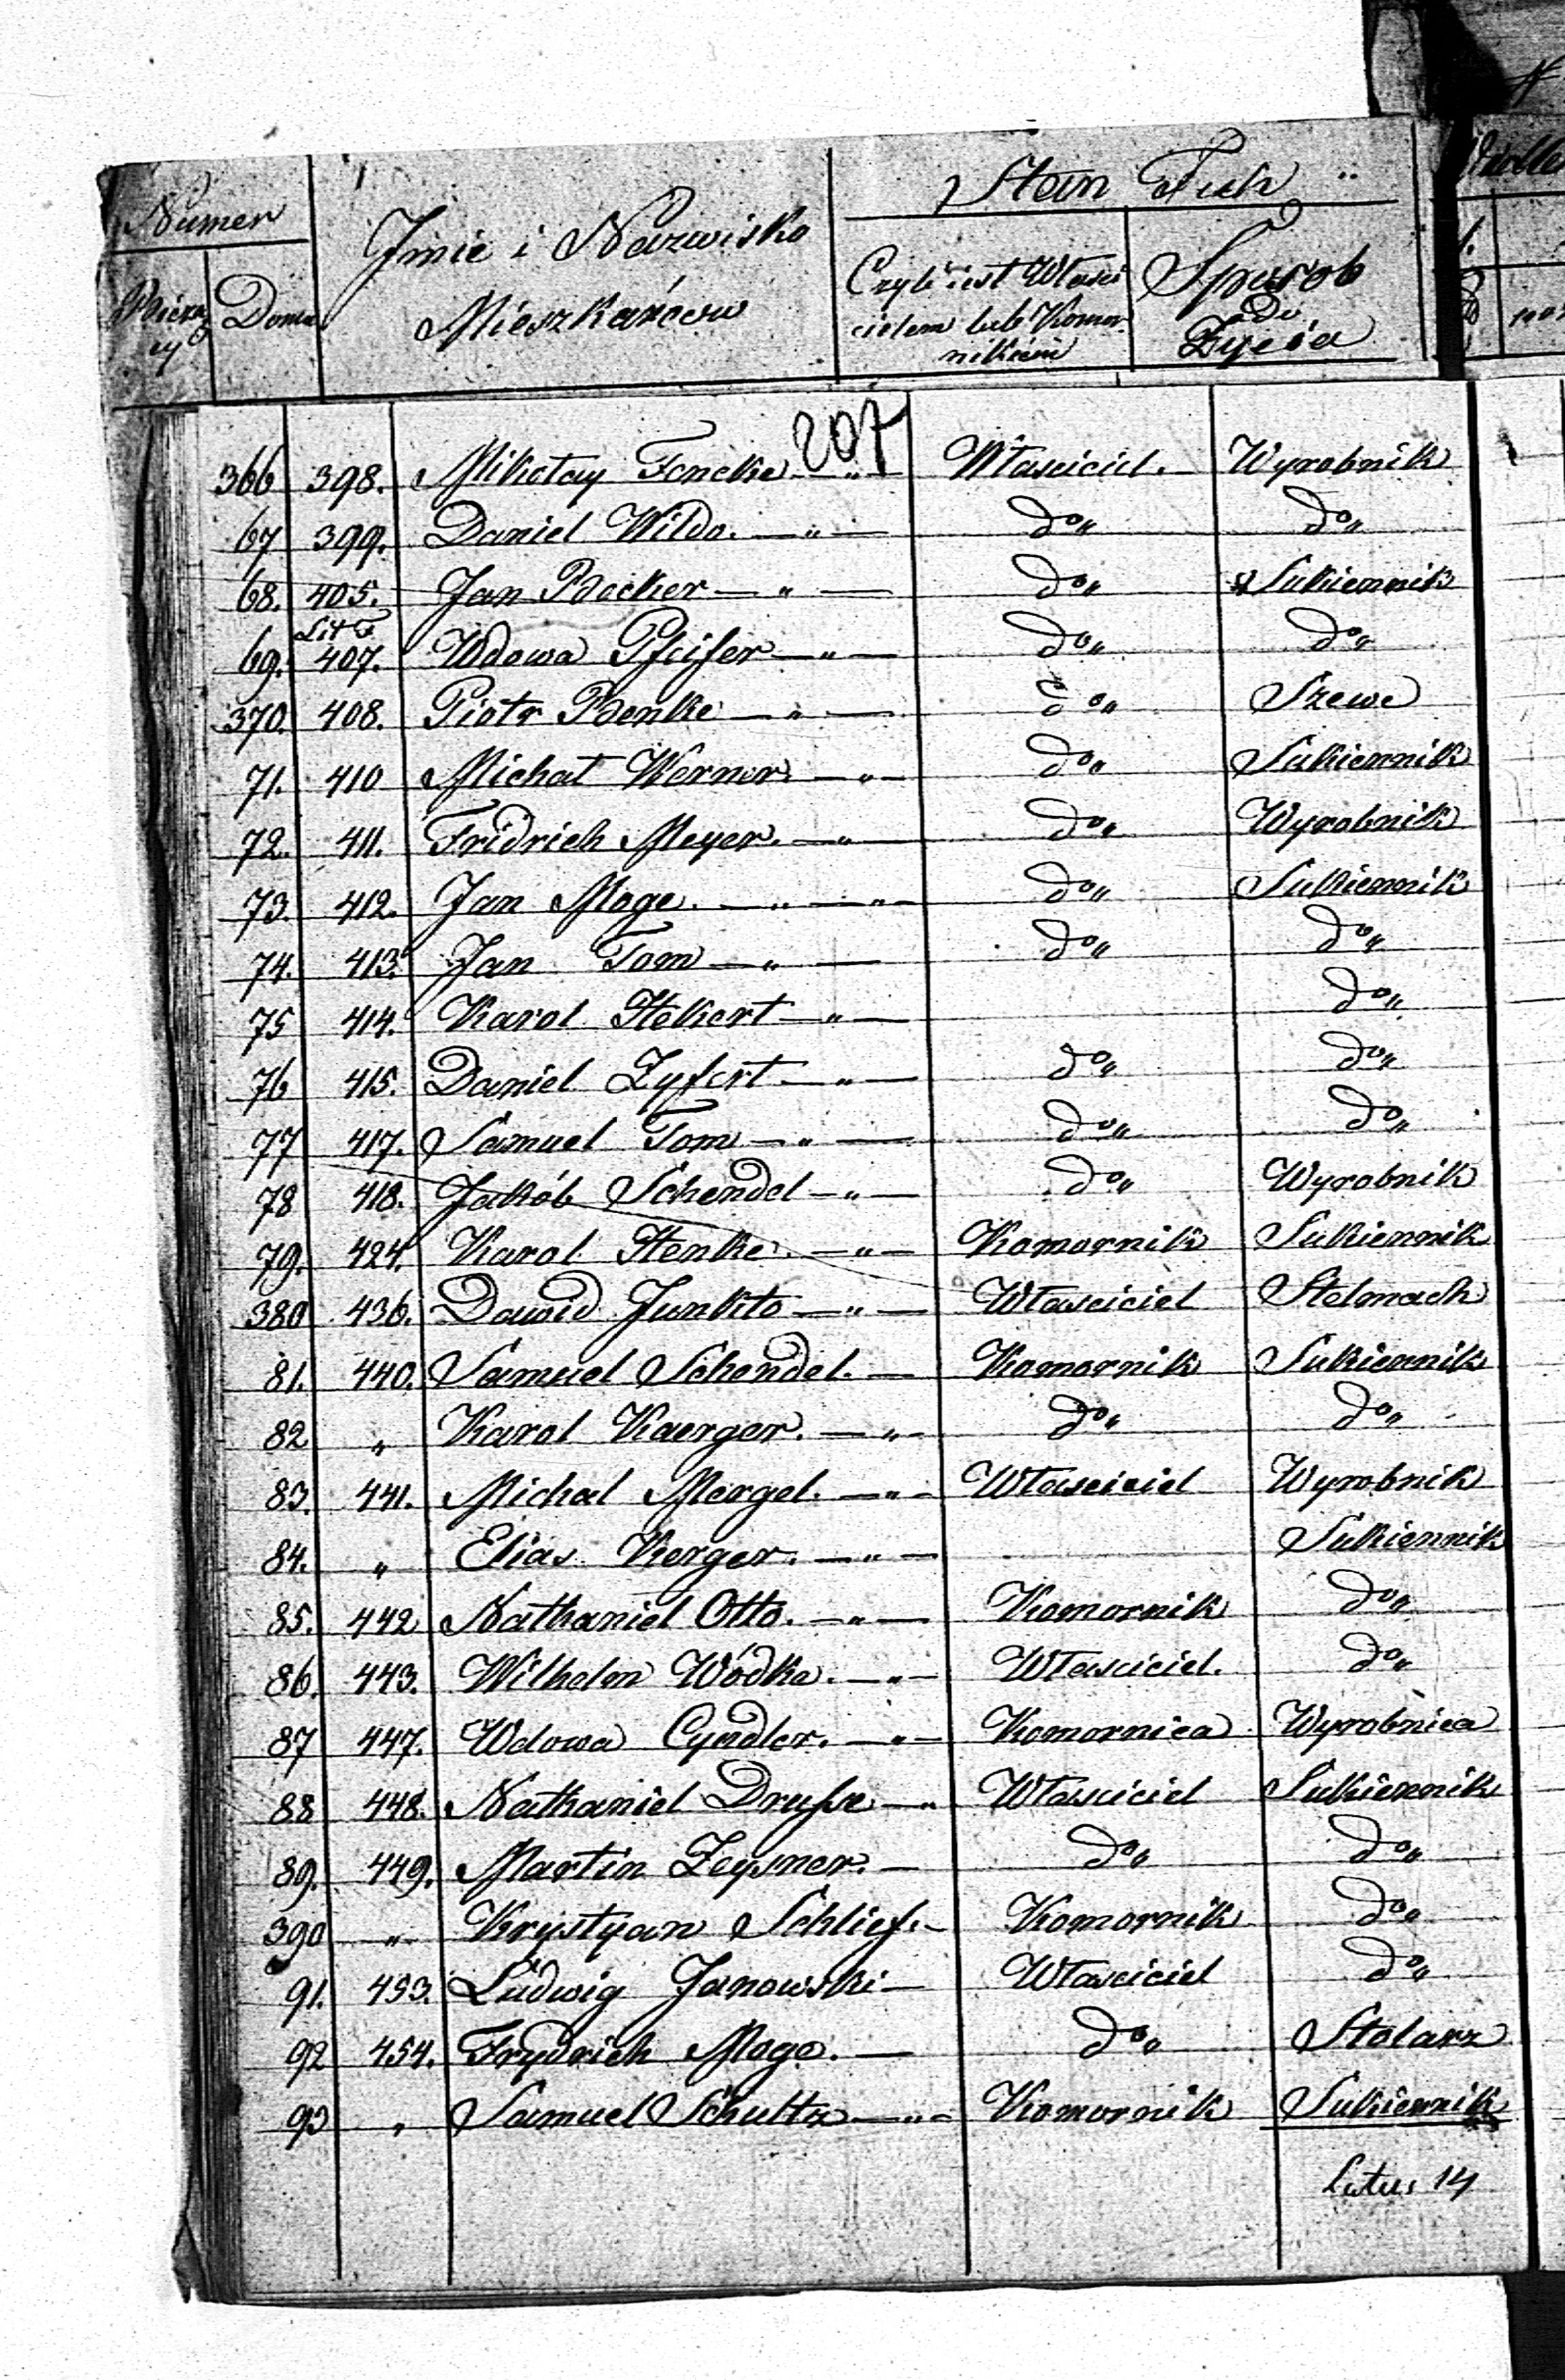 Numer
Jmie i Nazwisko
Mieszkańców
Stan Fuh
Bieżący
Domu
Czyli iest Właści
cielem lub Komor
nikiem
Sposob
do
Życia
207
366 398. Mikołay Foncke —„— Własciciel. Wyrobnik
67 399. Daniel Wildo. —„— do„ do„
68. 405. Jan Becker —„— do„ Sukiennik
Lit F
69. 407. Wdowa Pfeifer —„— do„ do„
370. 408. Piotr Benke —„— do„ Szewc
71. 410 Michał Werner. —„— do„ Sukiennik
72. 411. Fridrich Meyer. —„ do„ Wyrobnik
73. 412. Jan Moge. —„—„— do„ Sukiennik
74. 413. Jan Tom —„— do„ do„
75 414. Karol Stekert —„— do„
76 415. Daniel Zyfert —„— do„ do„
77 417. Samuel Tom —„— do„ do„
78 418. Jakób Schendel —„— do„ Wyrobnik
79. 424. Karol Henke. —„— Komornik Sukiennik
380 436. Dawid Junkto —„— Własciciel Stelmach
81. 440. Samuel Schendel. — Komornik Sukiennik
82 „ Karol Kaerger. —„— do„ do„
83. 441. Michal Mergel. —„— Własciciel Wyrobnik
84. „ Elias Kerger. —„— Sukiennik
85. 442 Nathaniel Otto. —„— Komornik do„
86. 443. Wilhelm Wódka. —„— Własciciel. do„
87 447. Wdowa Cyndler. —„— Komornica Wyrobnica
88 448. Nathaniel Druse —„ Własciciel Sukiennik
89. 449. Martin Zeysner. — do„ do„
390 „ Krystyan Schlief. — Komornik do„
91. 453. Ludwig Janowski — Własciciel do„
92 454. Frydrich Moge. — do„ Stolarz
93 „ Samuel Schultz —„— Komornik Sukiennik
Latus 14